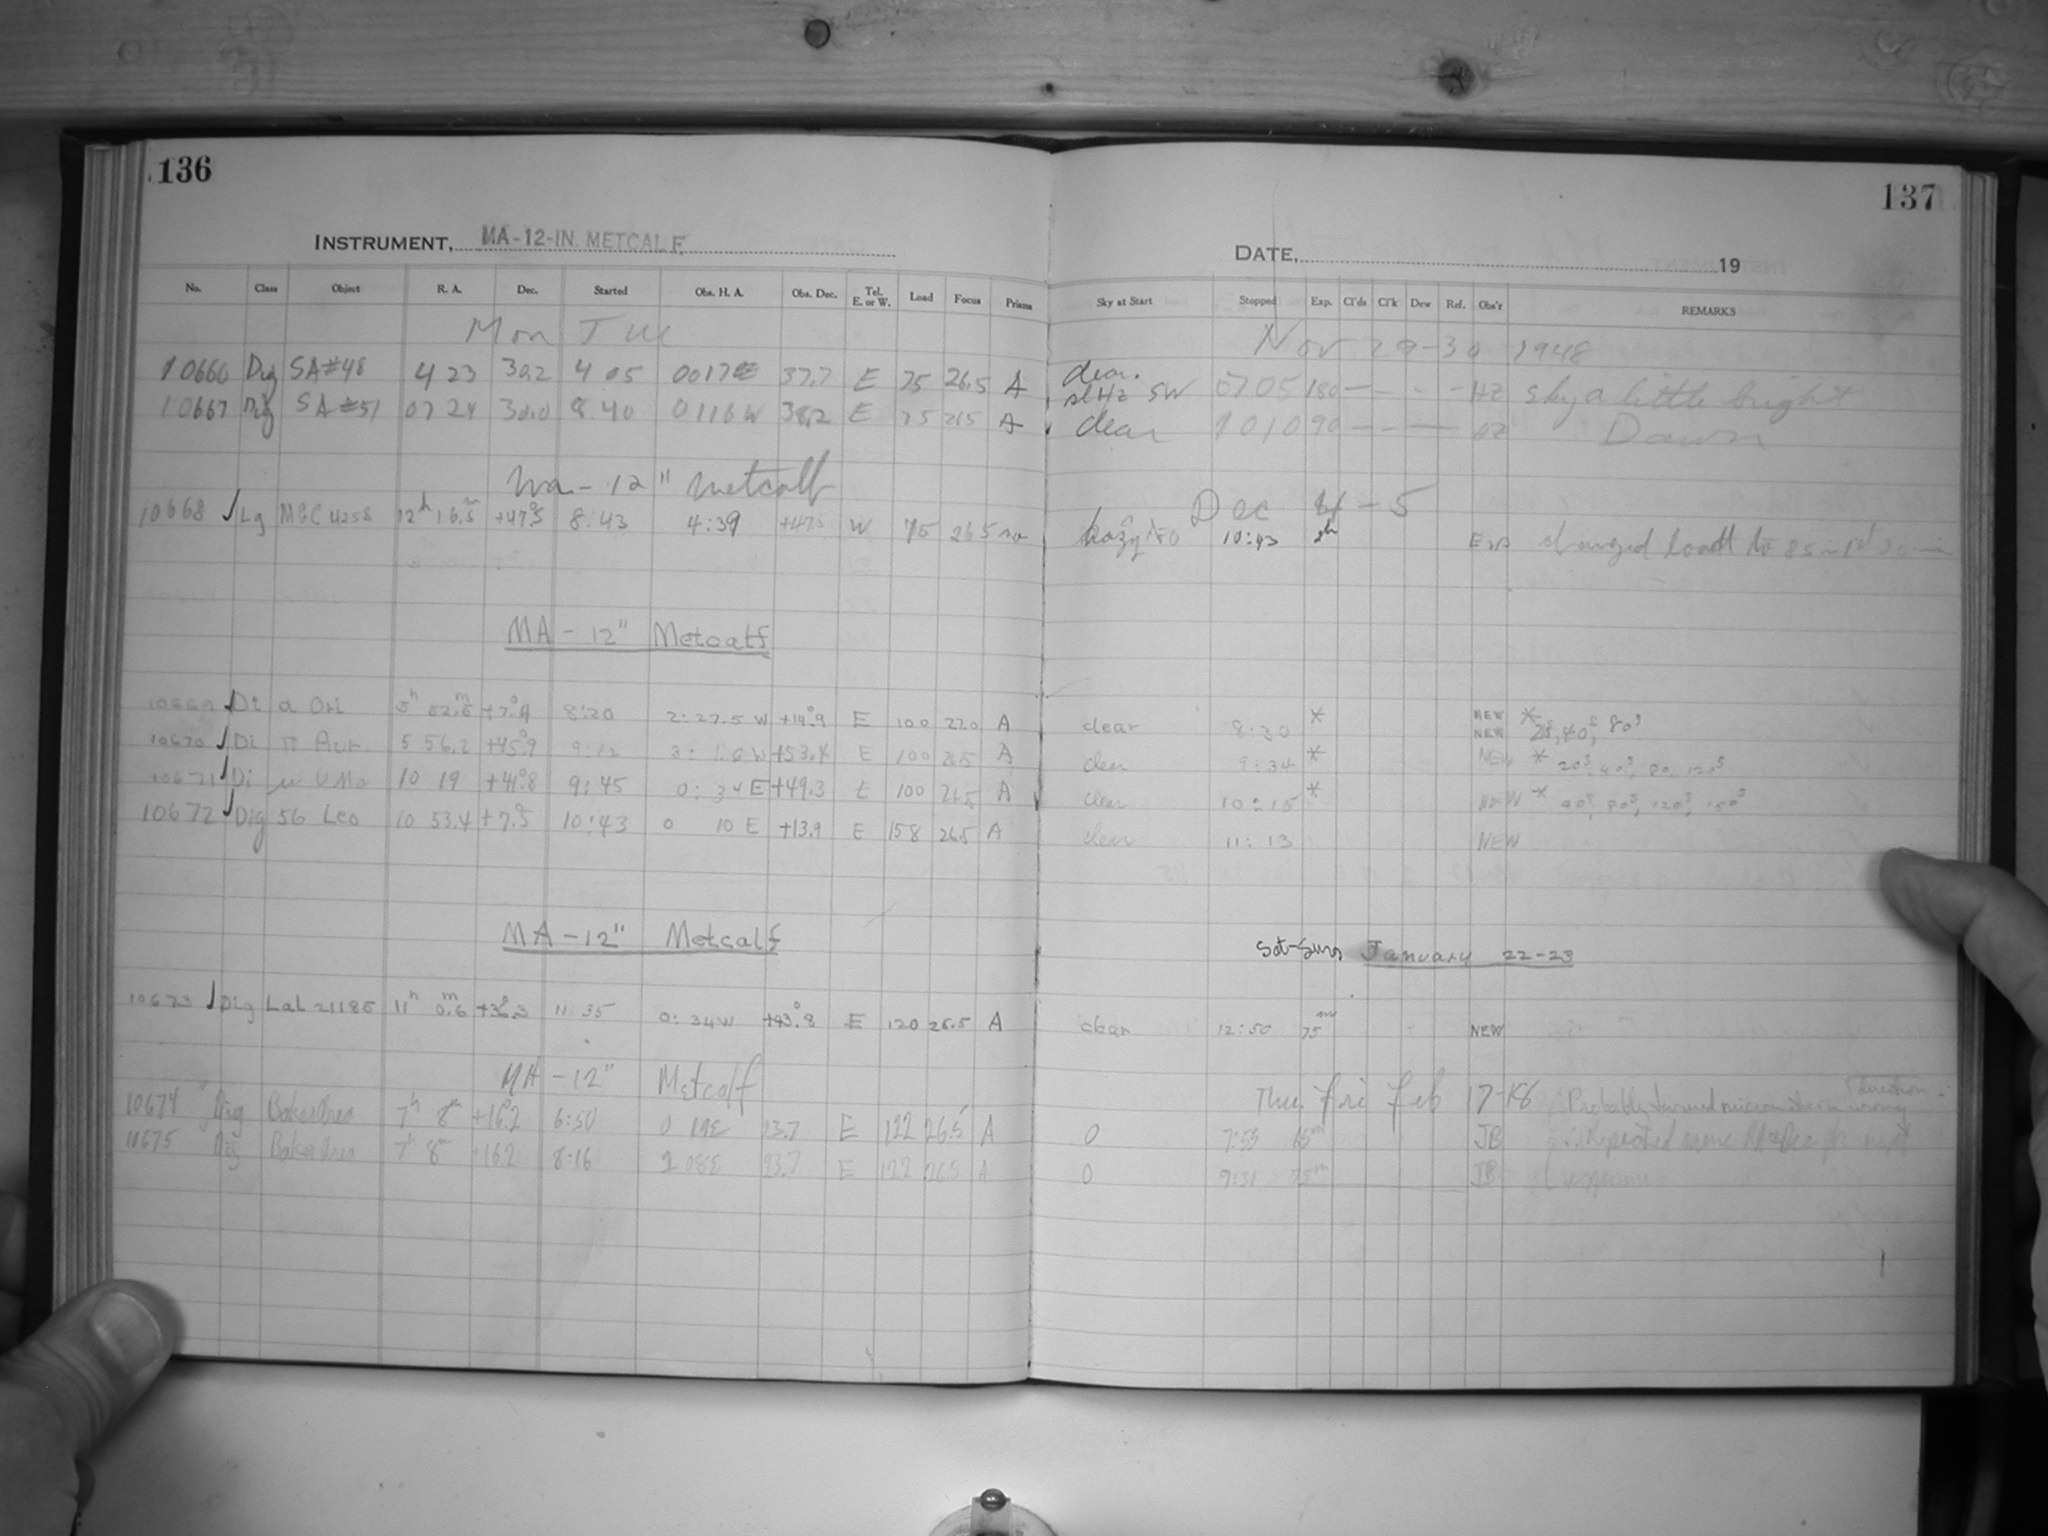 136
INSTRUMENT, MA-12-IN. METCALF
No. Class Object R. A. Dec. Started Obs. H. A. Obs. Dec. Tel. E. or W. Load Focus Prisms
Mon Tue
10666 Dig SA#48 4 23 30.2 4 05 0017E 37.7 E 75 26.5 A
10667 Dig SA #51 07 24 30.0 8.40 0116W 38.2 E 75 26.5 A
Ma - 12" Metcalf
10668 Lg NGC 4258 12h 16.5m +47.5 8:43 4:39 +47.5 W 75 26.5 no
MA - 12" Metcalf
10669 Di α Ori 5h 52.5m +7.4 8:20 2:27.5 W +14.9 E 100 27.0 A
10670 Di π Aur 5 56.2 +45.9 9:12 3: 1.6 W +53.4 E 100 26.5 A
10671 Di μ UMa 10 19 +41.8 9:45 0: 34 E +49.3 E 100 26.5 A
10672 Dig 56 Leo 10 53.4 +7.5 10:43 0 10 E +13.9 E 158 26.5 A
MA - 12" Metcalf
10673 Dig Lal 21185 11h 0.6m +36.3 11:35 0: 34W +43.8 E 120 26.5 A
MA - 12" Metcalf
10674 Dig 7h 8m +16.2 6:50 0 19E 23.7 E 122 26.5 A
10675 Dig 7h 8m +16.2 8:16 1 08E 23.7 E 122 26.5 A
137
DATE, 19
Sky at Start Stopped Exp. Cl'ds Cl'k Dew Ref. Obs'r REMARKS
Nov 29-30 1948
clear. sl Hz SW 0705 180 — — - - HZ sky a little bright
clear 1010 90 — - — HZ Dawn
Dec 4 - 5
hazy 10:43 2h changed load to 85 in 1st 20 min
clear 8:20 * NEW
NEW * 80s
clear 9:34 * NEW * 20s, 40s, 80, 120s
clear 10:15 * NEW * 120s, 150s
clear 11:13 NEW
Sat-Sun January 22-23
clear 12:50 75m NEW
Thu Fri Feb 17-18 Probably turned micrometer in wrong direction.
0 7:55 65m JB Repeated same RA & Dec for next
0 9:31 75m JB